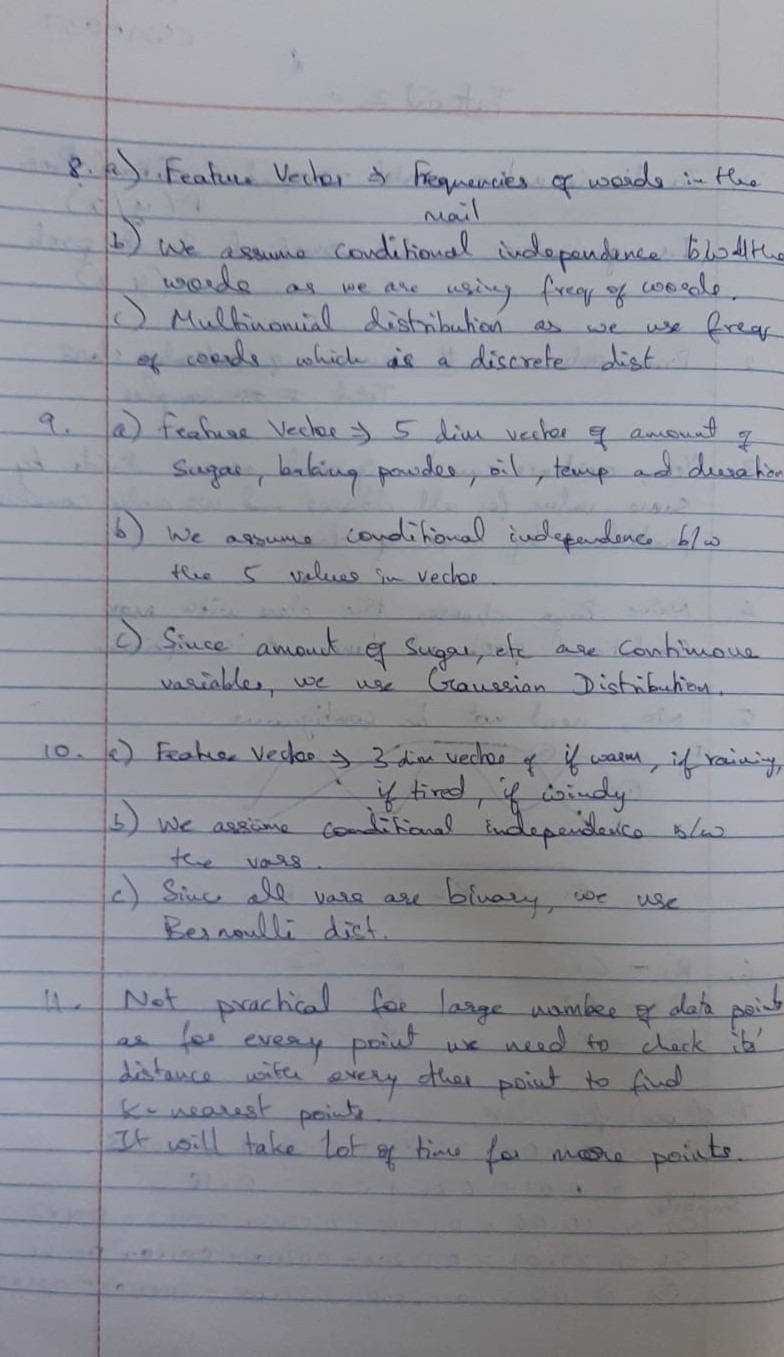 8. a) Feature Vector → frequencies of words in the
mail
b) We assume conditional independence b/w all the
words as we are using freq of words.
c) Multinomial distribution as we use freq
of words which is a discrete dist
9. a) Feature Vector → 5 dim vector of amount of
sugar, baking powder, oil, temp ad duration
b) We assume conditional independence b/w
the 5 values in vector
c) Since amount of sugar, etc are Continuous
variables, we use Gaussian Distribution.
10. a) Feature Vector → 3 dim vector of if warm, if raining,
if tired, if windy
b) We assume conditional independence b/w
the vars.
c) Since all vars are binary, we use
Bernoulli dist.
11. Not practical for large number of data points
as for every point we need to check its'
distance with every other point to find
K-nearest points
It will take lot of time for more points.